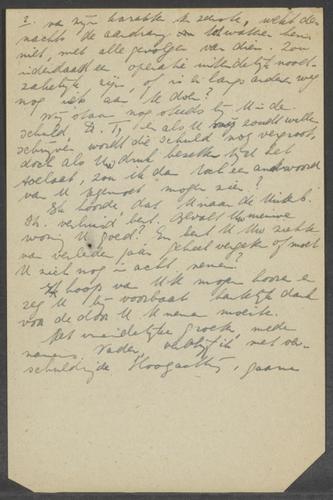 2. van zijn karakter te zenuw, wekt des
nachts de aandrang om te wateren hem
niet, met alle gevolgen van dien. Zou
inderdaad een operatie uiteindelijk nood-
zakelijk zijn, of is er langs anderen weg
nog iets aan te doen?
Wij staan nog steeds bij U in de
schuld, Z. T., en als U ons zoudt willen
schrijven wordt die schuld nog vergroot,
doch als Uw drukke bezette tijd het
toelaat, zou ik dan toch een antwoord
van U tegemoet mogen zien?
Ik hoorde dat U naar de
str. verhuisd bent. Bevalt Uw nieuwe
woning U goed? En bent U Uw ziekte
van verleden jaar geheel vergeten of moet
U zich nog in acht nemen?
Ik hoop van U te mogen hooren en
zeg U bij voorbaat hartelijk dank
voor de door U te nemen moeite.
Met vriendelijke groeten, mede
namens Vader, verblijf ik met ver-
schuldigde Hoogachting, gaarne